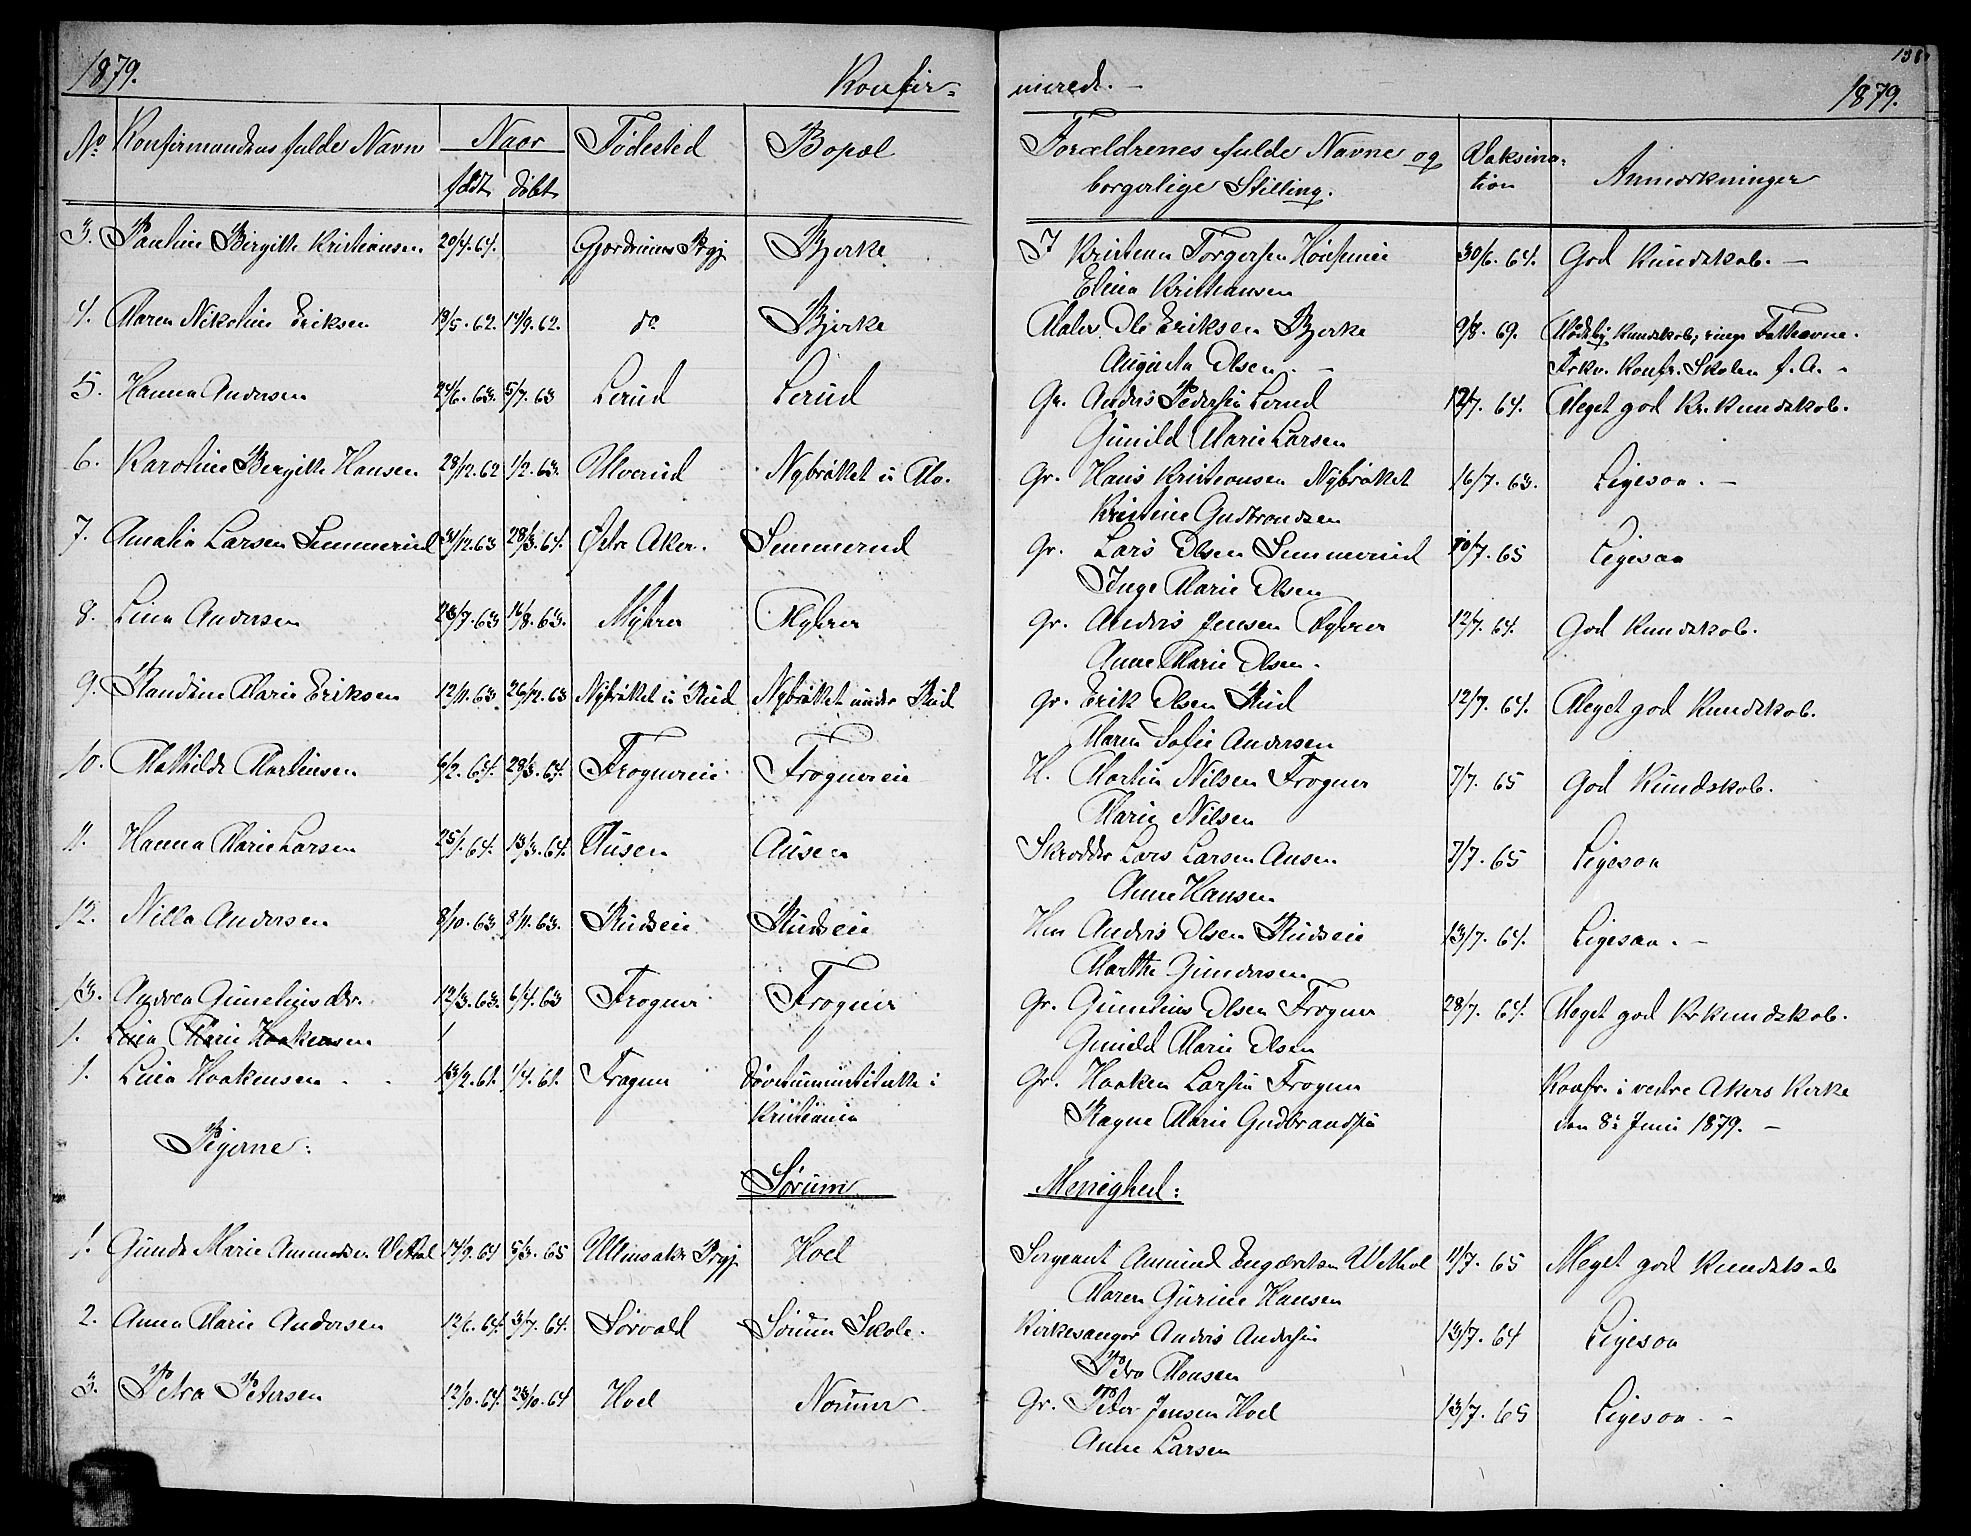 138.
1879. Konfir= merede. – 1879.
No Konfirmandens fulde Navn Naar Fødested Bopæl Forældrenes fulde Navne og Vaksina=
født døbt borgerlige Stilling. tion Anmærkninger
3. Pauline Birgitte Kristiansen 20/4. 64. Gjerdrums Prgj. Bjerke I Kristian Torgersen 30/6. 64. God Kundskab. –
Elina Kristiansen
4. Maren Nikoline Eriksen 18/5. 62. 14/9. 62. do Bjerke Maler Ole Eriksen Bjerke 9/8. 69. Kundskab, ringe Fatteevne.
Augusta Olsen. – Frkv. Konfr. Skolen f. A. –
5. Hanna Andersen 24/6. 63. 5/7. 63 Lerud Lerud Gr. Anders Pedersen Lerud 12/7. 64. Meget god Kr. Kundskab.
Gunild Marie Larsen
6. Karoline Birgitte Hansen 28/12. 62 1/2. 63. Ulverud Nybråttet u. Mo. Gr. Hans Kristiansen Nybråttet 16/7. 63. Ligesaa. –
Kristine Gudbrandsen
7. Amalia Larsen Semmerud 31/12. 63 28/3. 64. Østre Aker. Semmerud Gr. Lars Olsen Semmerud 10/7. 65 Ligesaa
Inge Marie Olsen
8. Lina Andersen 23/7. 63 16/8. 63. Myhrer Myhrer Gr. Anders Jensen Myhrer 12/7. 64. God Kundskab.
Anne Marie Olsen.
9. Randine Marie Eriksen 12/11. 63. 26/12. 63 Nybråttet u. Rud Nybråttet under Rud Gr. Erik Olsen Rud 12/7. 64. Meget god Kundskab.
Maren Sofie Andersen
10. Mathilde Martinsen 6/2. 64. 28/3. 64. Frognereie Frognereie H. Martin Nilsen Frogner 7/7. 65 God Kundskab.
Marie Nilsen
11. Hanna Marie Larsen 25/1. 64. 13/3. 64. Ausen Ausen Skrædder Lars Larsen Ausen 7/7. 65 Ligesaa
Anne Hansen
12. Nilla Andersen 8/10. 63. 8/11. 63. Rudseie Rudseie Hm Anders Olsen Rudseie 13/7. 64. Ligesaa. –
Marthe Gundersen
13. Andrea Gunelius dtr. 12/3. 63. 6/4. 63 Frogner Frogner Gr. Gunelius Olsen Frogner 28/7. 64. Meget god Kr kundskab.
1. Lina Marie Haakensen / Gunild Marie Olsen
1. Lina Haakensen 13/2. 61. 1/4. 61. Frogner Døvstumminstitutte i Gr. Haaken Larsen Frogner Konfr. i vestre Akers Kirke
Kristiania Ragne Marie Gudbrandsen den 8de Juni 1879. –
Pigerne:
Sørum Menighed:
1. Gunda Marie Amundsen Vethal 14/9. 64 5/3. 65 Ullensaker Prgj. Hoel Sergeant Amund Engebretsen Vethal 11/7. 65 Meget god Kundskab
Maren Gurine Hansen
2. Anna Marie Andersen 12/6. 64. 3/7. 64. Sørvald Sørum Skole. Kirkesanger Anders Andersen 13/7. 64 Ligesaa
Pedra Monsen
3. Petra Petersen 12/10. 64. 23/10. 64 Hoel Norumer Gr. Peter Jensen Hoel 13/7. 65 Ligesaa. –
Anne Larsen